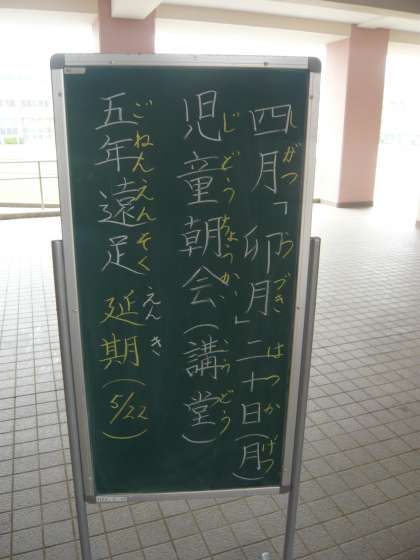 四月「卯月」二十日(月)
しがつ うづき はつか げつ
児童朝会(講堂)
じどうちょうかい こうどう
五年遠足 延期(5/22)
ごねんえんそく えんき